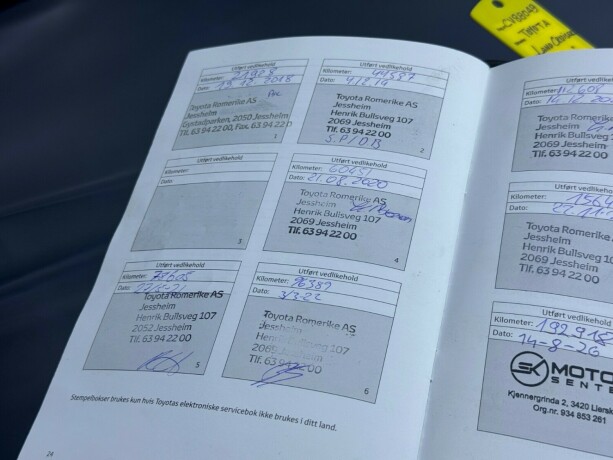 Utført vedlikehold
Kilometer:
Dato: 2018
Toyota Romerike AS
Jessheim
2050 Jessheim
Tlf. 63 94 22 00, Fax. 63 94 22
1
Utført vedlikehold
Kilometer:
Dato:
Toyota Romerike AS
Jessheim
Henrik Bullsveg 107
2069 Jessheim
Tlf. 63 94 22 00
S.P/D.B
2
Utført vedlikehold
Kilometer:
Dato:
3
Utført vedlikehold
Kilometer:
Dato: 21.08.2020
Toyota Romerike AS
Jessheim
Henrik Bullsveg 107
2069 Jessheim
Tlf. 63 94 22 00
4
Utført vedlikehold
Kilometer:
Dato:
Toyota Romerike AS
Jessheim
Henrik Bullsveg 107
2052 Jessheim
Tlf. 63 94 22 00
5
Utført vedlikehold
Kilometer: 96387
Dato: 3/3-22
Toyota Romerike AS
Jessheim
Henrik Bullsveg 107
Jessheim
Tlf. 63 94 22 00
6
Stempelbokser brukes kun hvis Toyotas elektroniske servicebok ikke brukes i ditt land.
24
CV88048
Utført
Kilometer: 112608
Dato:
Toyota Romerike
Jessheim
Henrik Bullsveg
2069 Jessheim
Tlf. 63 94 22 00
Utført vedl
Kilometer:
Dato:
Toyota Rome
Jessheim
Henrik Bullsveg
2069 Jessheim
Tlf. 63 94 22 00
Utført vedlikeho
Kilometer: 192918
Dato: 14-8-26
SK MOTO
SENTE
Kjennergrinda 2, 3420 Liersk
Org.nr. 934 853 261